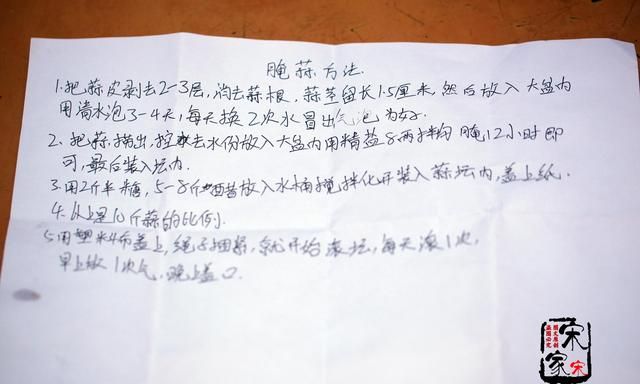 腌蒜方法.
1.把蒜皮剥去2-3层,消去蒜根,蒜茎留长1.5厘米,然后放入大盆内
用清水泡3-4天,每天换2次水冒出气泡为好.
2、把蒜捞出,控去水份放入大盆内用精盐8两拌均腌12小时即
可,最后装入坛内.
3.用2斤半糖,5-8斤醋放入水桶搅拌化开装入蒜坛内,盖上纸.
4.以上是10斤蒜的比例.
5.用塑料布盖上,绳子捆紧,就开始滚坛,每天滚1次,
早上放1次气,晚上盖口.
宋家
宋